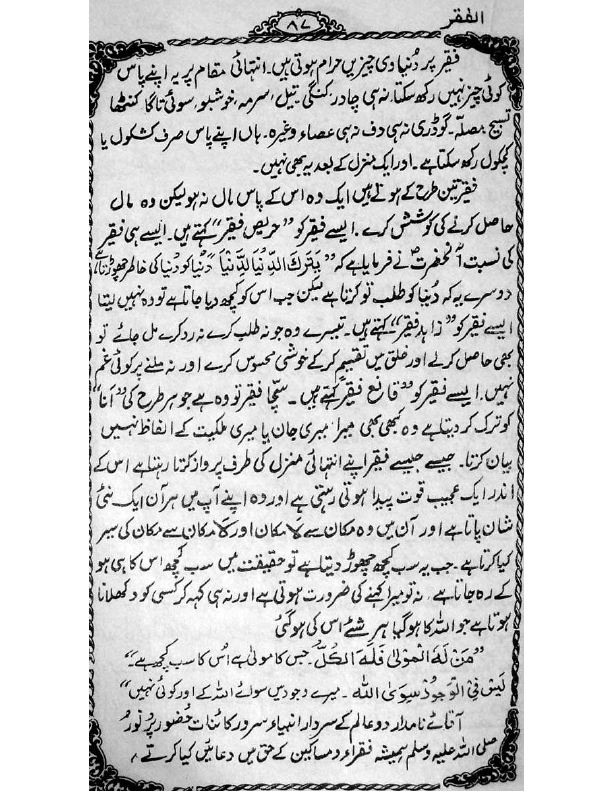 الفقر
۸۷
فقیر پر دُنیاوی چیزیں حرام ہوتی ہیں۔ انتہائی مقام پر یہ اپنے پاس
کوئی چیز نہیں رکھ سکتا۔ نہ ہی چادر، کنگھی تیل، سرمہ، خوشبو، سوئی تاگا کنٹھا
تسبیح مصلّہ۔ گوڈری نہ ہی دف نہ ہی عصاء وغیرہ۔ ہاں اپنے پاس صرف کشکول یا
کچکول رکھ سکتا ہے۔ اور ایک منزل کے بعد یہ بھی نہیں۔
فقیر تین طرح کے ہوتے ہیں ایک وہ اس کے پاس مال نہ ہو لیکن وہ مال
حاصل کرنے کی کوشش کرے۔ ایسے فقیر کو “حریص فقیر“ کہتے ہیں۔ ایسے ہی فقیر
کی نسبت آنحضرتؐ نے فرمایا ہے کہ “یَتْرَكَ الدُّنْیَا لِلدُّنْیَا“ دُنیا کو دُنیا کی خاطر چھوڑتا ہے
دوسرے یہ کہ دُنیا کو طلب تو کرتا ہے لیکن جب اس کو کچھ دیا جاتا ہے تو وہ نہیں لیتا
ایسے فقیر کو “زاہد فقیر“ کہتے ہیں۔ تیسرے وہ جو نہ طلب کرے نہ رد کرے مل جائے تو
بھی حاصل کرلے اور خلق میں تقسیم کر کے خوشی محسوس کرے اور نہ ملنے پر کوئی غم
نہیں۔ ایسے فقیر کو “قانع فقیر“ کہتے ہیں۔ سچّا فقیر تو وہ ہے جو ہر طرح کی “اَنا“
کو ترک کر دیتا ہے وہ کبھی بھی میرا میری جان یا میری ملکیت کے الفاظ نہیں
بیان کرتا۔ جیسے جیسے فقیر اپنے انتہائی منزل کی طرف پرواز کرتا رہتا ہے اس کے
اندر ایک عجیب قوت پیدا ہوتی رہتی ہے اور وہ اپنے آپ میں ہر آن ایک نئی
شان پاتا ہے اور آن میں وہ مکان سے لا مکان اور لا مکان سے مکان کی سیر
کیا کرتا ہے۔ جب یہ سب کچھ چھوڑ دیتا ہے تو حقیقت میں سب کچھ اس کا ہی ہو
کے رہ جاتا ہے۔ نہ تو میرا کہنے کی ضرورت ہوتی ہے اور نہ ہی کہہ کر کسی کو دکھلانا
ہوتا ہے جو اللہ کا ہو گیا ہر شئے اس کی ہو گئی
“مَنْ لَهُ الْمَوْلیٰ فَلَهُ الْكُلُّ“۔ جس کا مولیٰ ہے اُس کا سب کچھ ہے۔“
لَیْسَ فِی الْوَجُوْدُ سِوَیٰ اللّٰه ۔ میرے وجود میں سوائے اللہ کے اور کوئی نہیں“
آقائے نامدار دو عالم کے سردار انبیاء سرور کائنات حُضور پُر نور
صلی اللہ علیہ وسلم ہمیشہ فقراء و مساکین کے حق میں دعائیں کیا کرتے